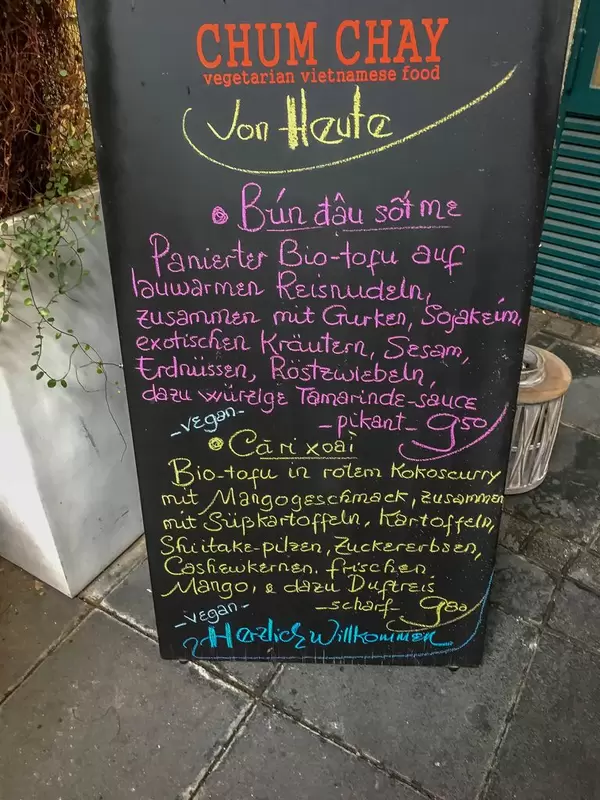 CHUM CHAY
vegetarian vietnamese food
Von Heute
Bún đậu sốt me
Panierter Bio-tofu auf
lauwarmen Reisnudeln,
zusammen mit Gurken, Sojakeim,
exotischen Kräutern, Sesam,
Erdnüssen, Röstzwiebeln,
dazu würzige Tamarinde-sauce
-vegan- -pikant- 950
Cà ri xoài
Bio-tofu in rotem Kokoscurry
mit Mangogeschmack, zusammen
mit Süßkartoffeln, Kartoffeln,
Shiitake-pilzen, Zuckererbsen,
Cashewkernen, frischen
Mango, & dazu Duftreis
-vegan- -scharf- 980
Herzlich Willkommen